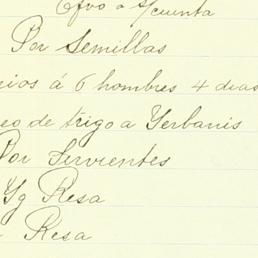 Efvo a s/cuenta
Por Semillas
nios á 6 hombres 4 dias
eo de trigo a Yerbanis
Por Sirvientes
Yg Resa
Resa